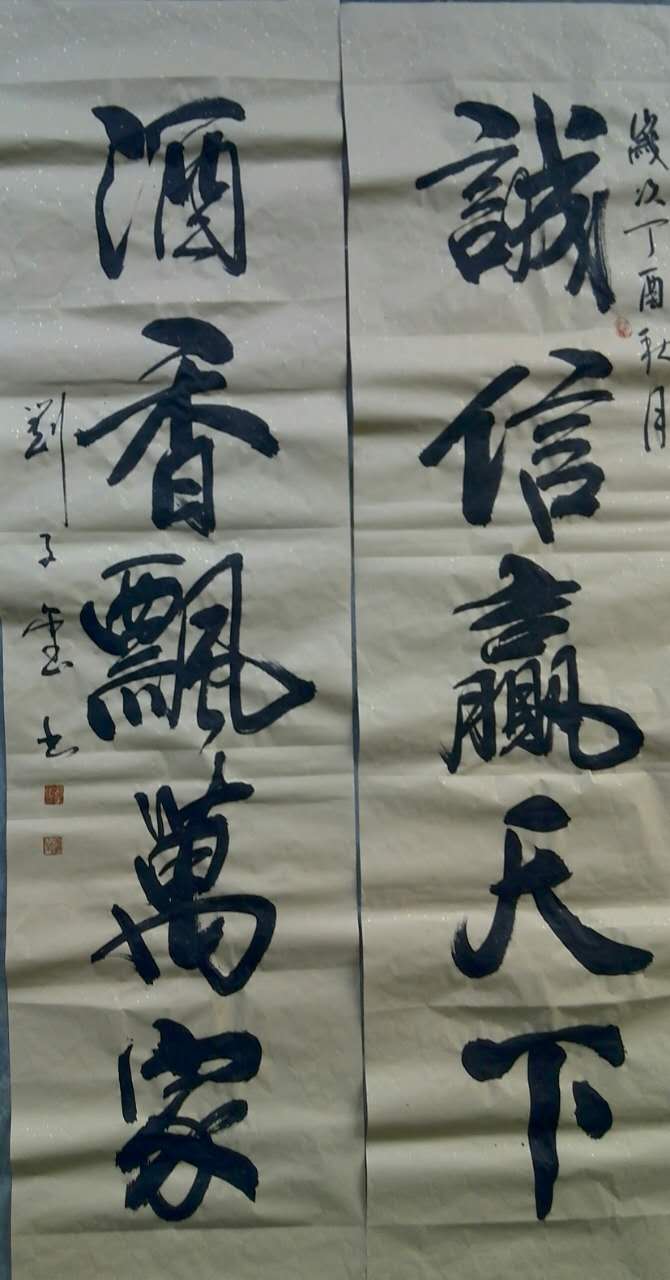 歲次丁酉秋月
誠信贏天下
酒香飄萬家
劉子玺书